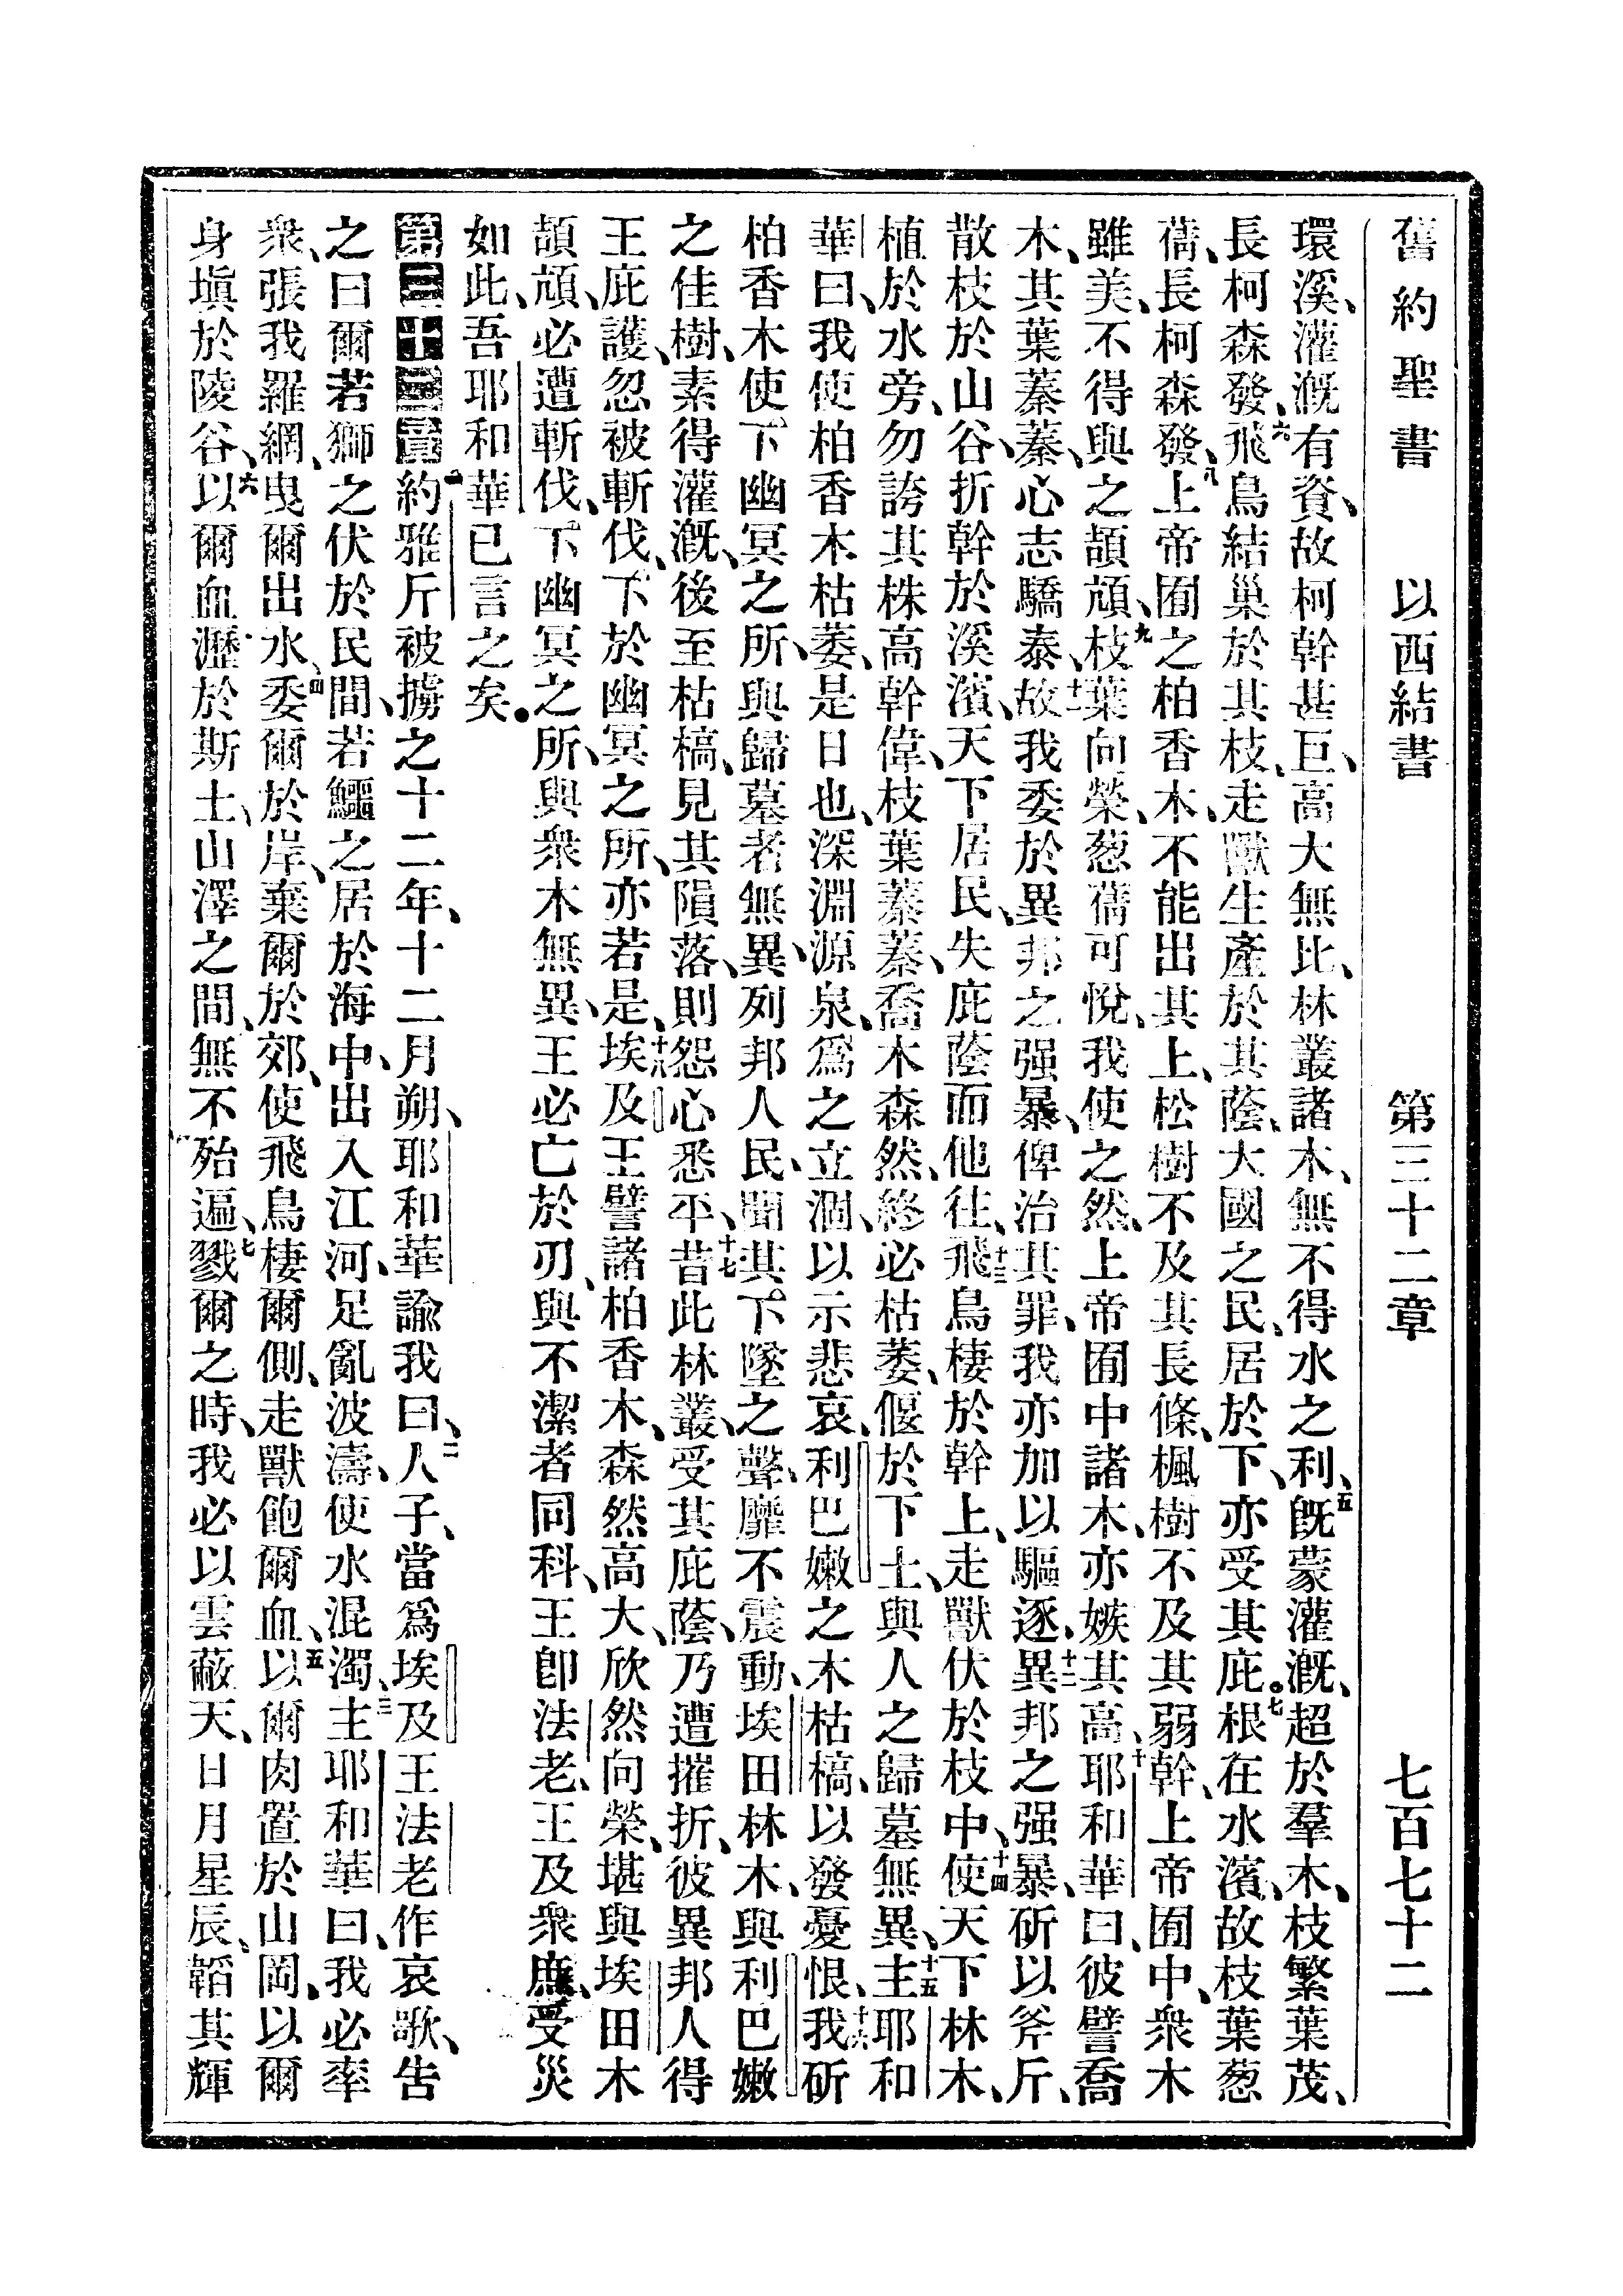 舊約聖書 以西結書 第三十二章 七百七十二
環溪、灌溉有資、故柯幹甚巨、高大無比、林叢諸木、無不得水之利、五旣蒙灌溉、超於羣木、枝繁葉茂、
長柯森發、六飛鳥結巢於其枝、走獸生產於其蔭、大國之民、居於下、亦受其庇、七根在水濱、故枝葉葱
蒨、長柯森發、八上帝囿之柏香木、不能出其上、松樹不及其長條、楓樹不及其弱幹、上帝囿中、衆木
雖美、不得與之頡頏、九枝葉向榮、葱蒨可悅、我使之然、上帝囿中諸木、亦嫉其高、十耶和華曰、彼譬喬
木、其葉蓁蓁、心志驕泰、十一故我委於異邦之强暴、俾治其罪、我亦加以驅逐、十二異邦之强暴、斫以斧斤、
散枝於山谷、折幹於溪濱、天下居民、失庇蔭而他往、十三飛鳥棲於幹上、走獸伏於枝中、十四使天下林木、
植於水旁、勿誇其株高幹偉、枝葉蓁蓁、喬木森然、終必枯萎、偃於下土、與人之歸墓無異、十五主耶和
華曰、我使柏香木枯萎、是日也、深淵源泉、爲之立涸、以示悲哀、利巴嫩之木枯槁、以發憂恨、十六我斫
柏香木、使下幽冥之所、與歸墓者無異、列邦人民、聞其下墜之聲、靡不震動、埃田林木、與利巴嫩
之佳樹、素得灌溉、後至枯槁、見其隕落、則怨心悉平、十七昔此林叢、受其庇蔭、乃遭摧折、彼異邦人得
王庇護、忽被斬伐、下於幽冥之所、亦若是、十八埃及王譬諸柏香木、森然高大、欣然向榮、堪與埃田木
頡頏、必遭斬伐、下幽冥之所、與衆木無異、王必亡於刃、與不潔者同科、王卽法老、王及衆庶、受災
如此、吾耶和華已言之矣。
第三十三章 一約雅斤被擄之十二年、十二月朔、耶和華諭我曰、二人子、當爲埃及王法老作哀歌、告
之曰、爾若獅之伏於民間、若鱷之居於海中、出入江河、足亂波濤、使水混濁、三主耶和華曰、我必率
衆、張我羅網、曳爾出水、四委爾於岸、棄爾於郊、使飛鳥棲爾側、走獸飽爾血、五以爾肉置於山岡、以爾
身塡於陵谷、六以爾血瀝於斯土、山澤之間、無不殆遍、七戮爾之時、我必以雲蔽天、日月星辰、韜其輝